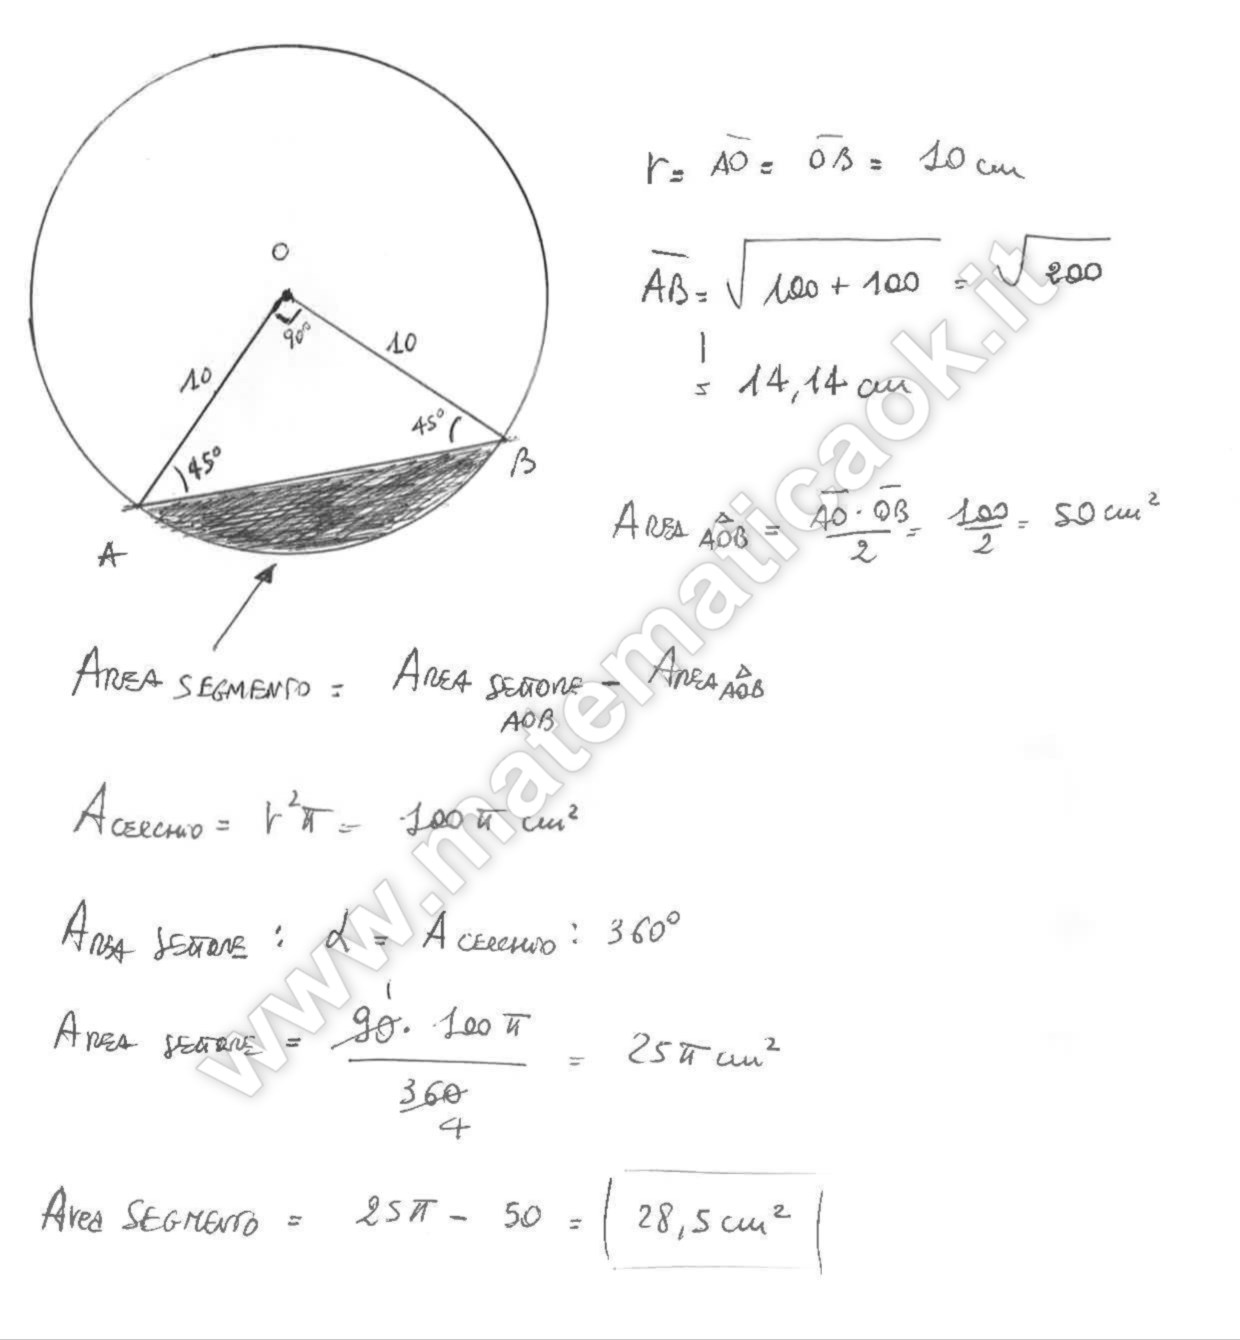 O
90°
10
10
45°
45°
A
B
r = AO = OB = 10 cm
AB = √100 + 100 = √200
= 14,14 cm
AREA AOB = AO · OB / 2 = 100 / 2 = 50 cm²
AREA SEGMENTO = AREA SETTORE AOB - AREA AOB
A CERCHIO = r²π = 100 π cm²
AREA SETTORE : α = A CERCHIO : 360°
AREA SETTORE = 90 · 100 π / 360 = 25 π cm²
1
4
Area SEGMENTO = 25π - 50 = 28,5 cm²
www.matematicaok.it